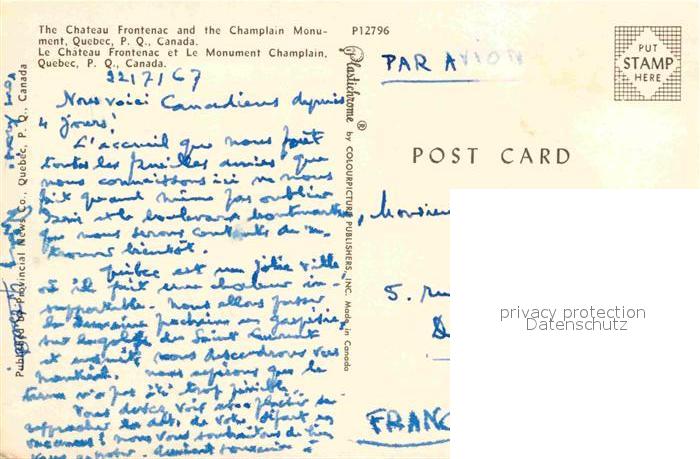 The Chateau Frontenac and the Champlain Monu-
ment, Quebec, P. Q., Canada.
Le Château Frontenac et Le Monument Champlain,
Quebec, P. Q., Canada.
P12796
22/7/67
Nous voici Canadiens depuis
4 jours!
L'accueil que nous font
toutes les familles amies que
nous connaissons ici ne nous
fait quand même pas oublier
Paris et le boulevard Montmartre
que nous serons contents de re-
trouver bientôt.
Québec est une jolie ville
où il fait une chaleur in-
supportable. Nous allons passer
la semaine prochaine en Gaspésie,
sur le golfe du Saint Laurent
et ensuite nous descendrons vers
Montréal. Nous espérons que le
temps n'a pas été trop pénible.
Vous devez voir avec plaisir se
rapprocher la date de votre départ en
vacances! nous vous souhaitons de bien
vous
Published by Provincial News Co., Quebec, P. Q., Canada
Plastichrome ® by COLOURPICTURE PUBLISHERS, INC. Made in Canada
PAR AVION
PUT
STAMP
HERE
POST CARD
Monsieur
5. ru
FRANC
privacy protection
Datenschutz